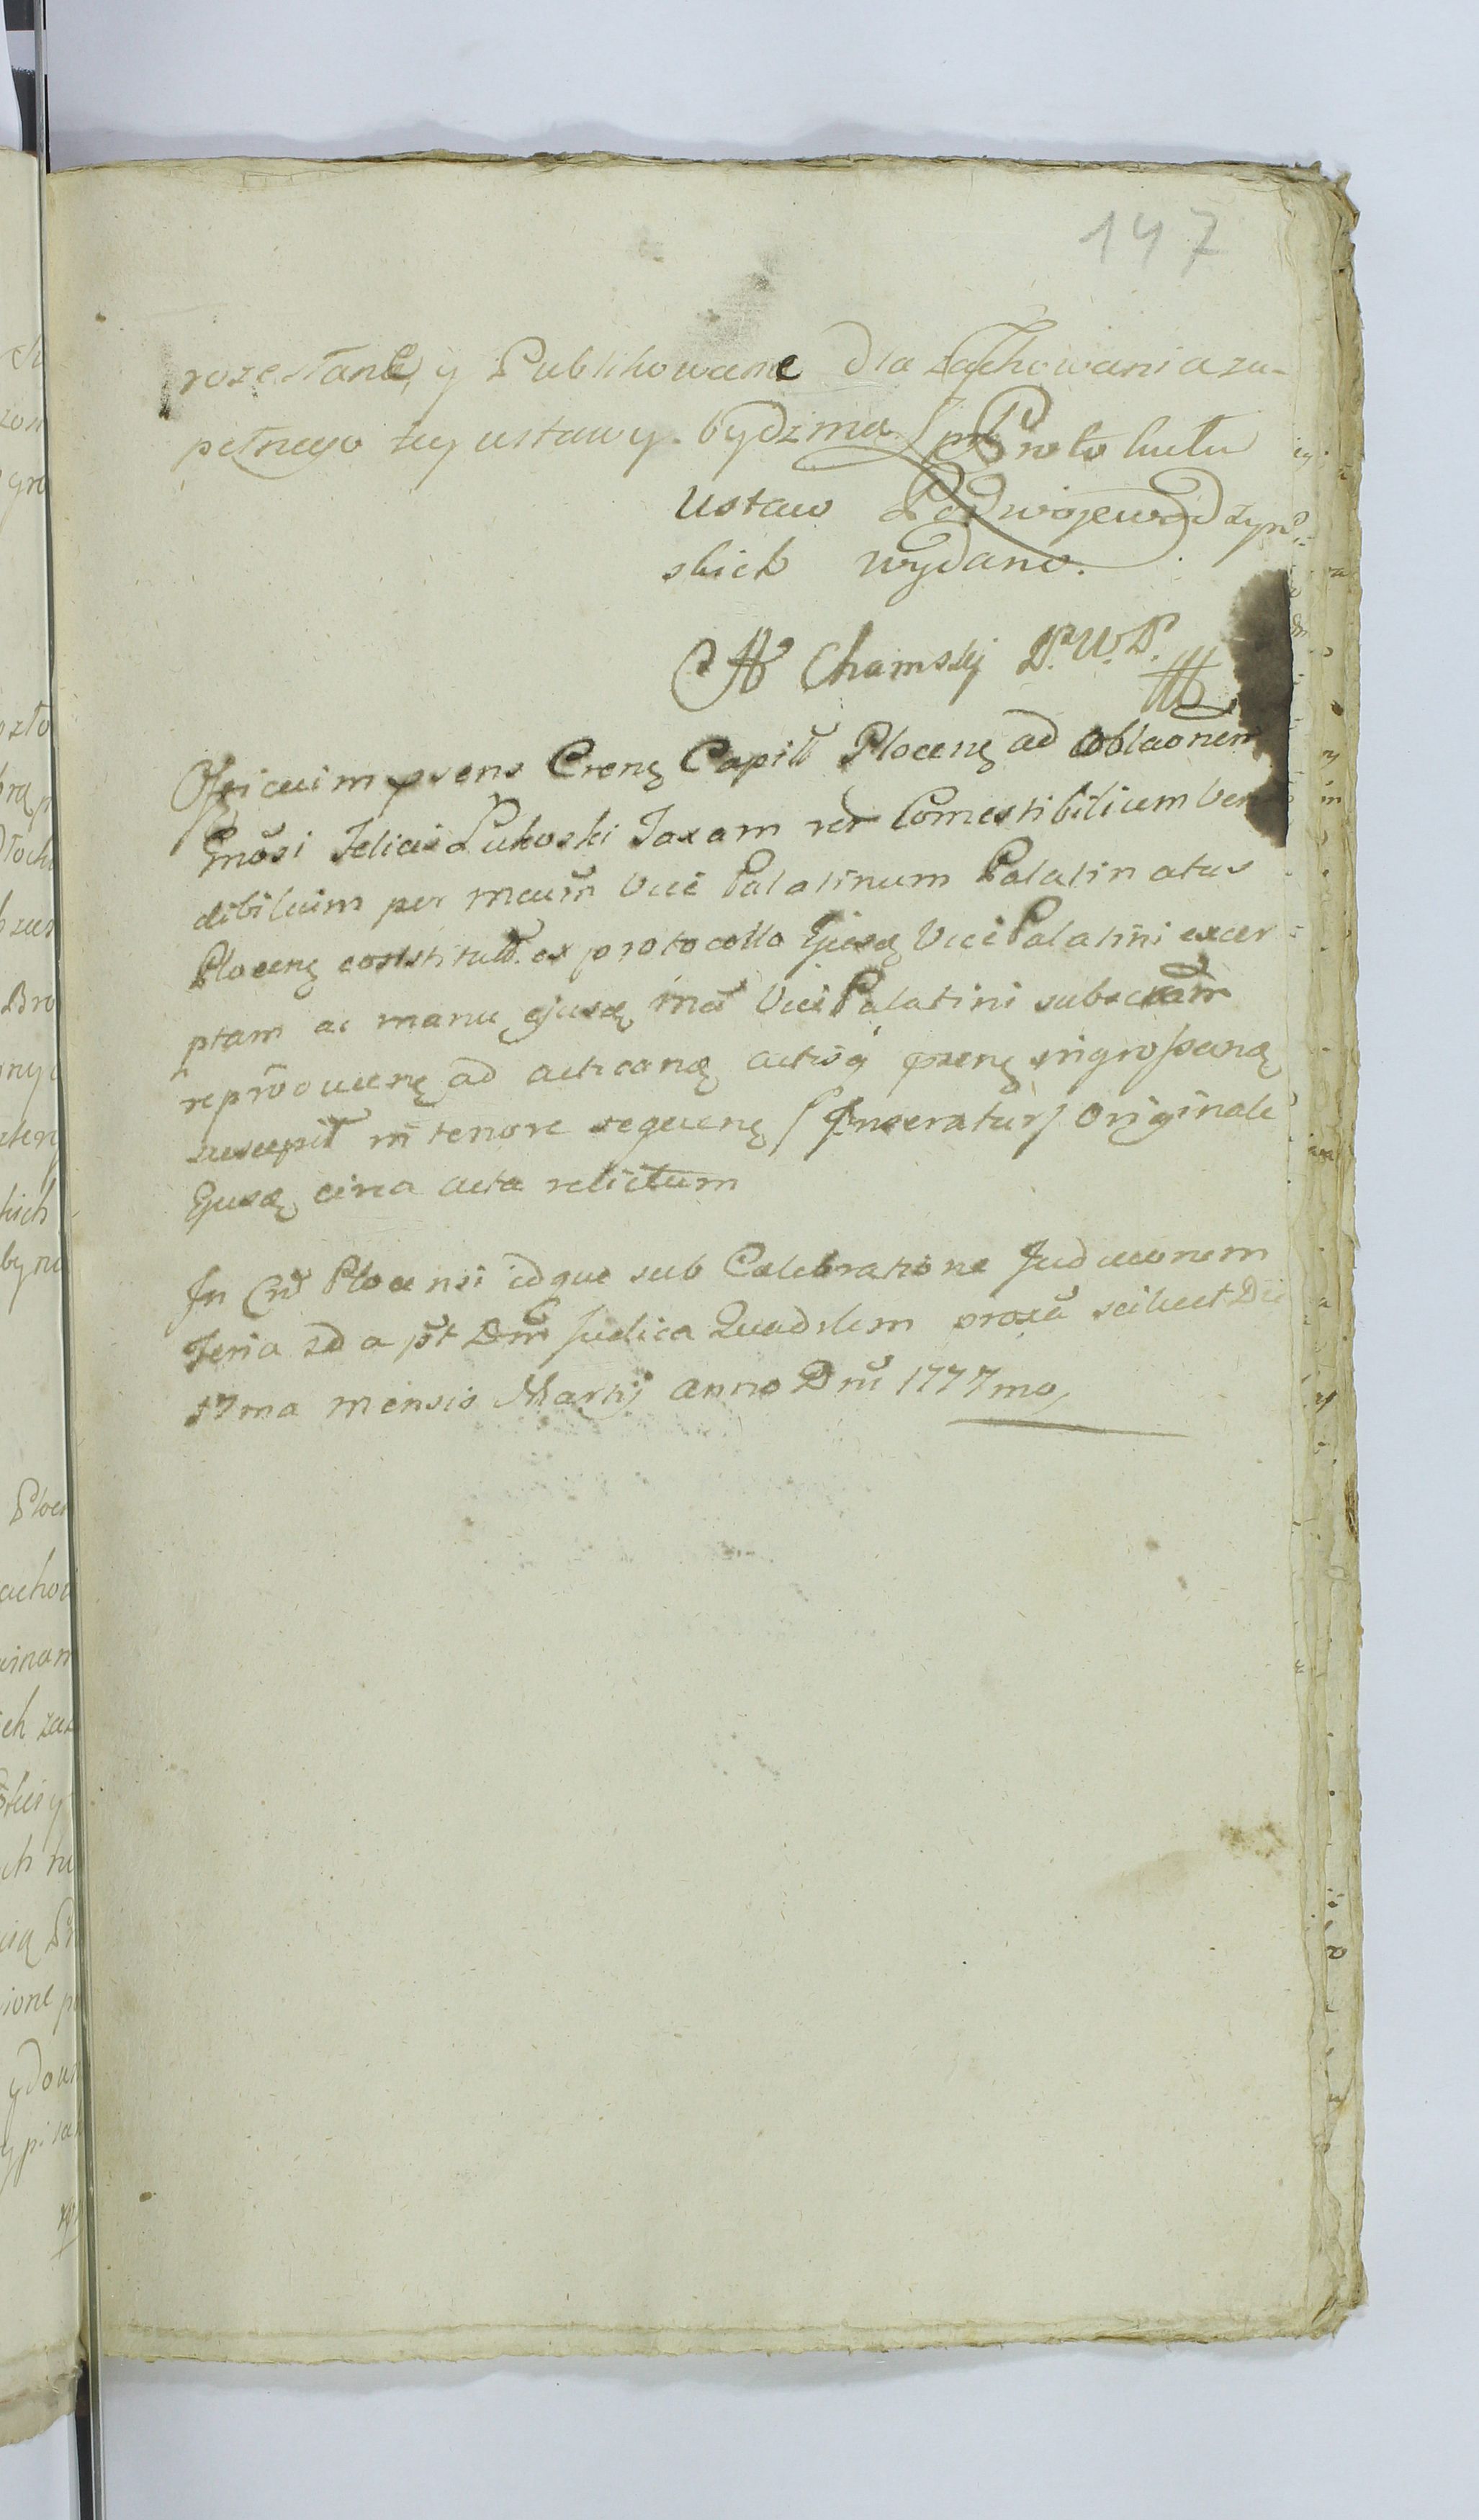 147
rozesłane, y Publikowane dla zachowania zu-
pełnego tey ustawy. bydz ma Protokułu
Ustaw Podwojewodzyń
skich wydano.
Chamskj P. W. P.
Officium psens Crens Capitł Plocens ad oblaonem
Gnosi Felicis Łukoski Taxam rer Comestibilium Ven
dibilium per mcum Vice Palatinum Palatinatus
Plocens constitutt. ex protocollo Ejusd Vice Palatini excer
ptam ac manu ejusd Vice Palatini subscram
reproducens ad acticand actisq psens ingrossand
suscepit in tenore sequens /Inseratur/ Originale
Ejusd circa acta relictum
In Cro Plocensi idque sub Celebratione Judiciorum
Feria 2da pt Dm Judica Quadslem proxa scilicet Die
17ma mensis Martij anno Dni 1777mo,